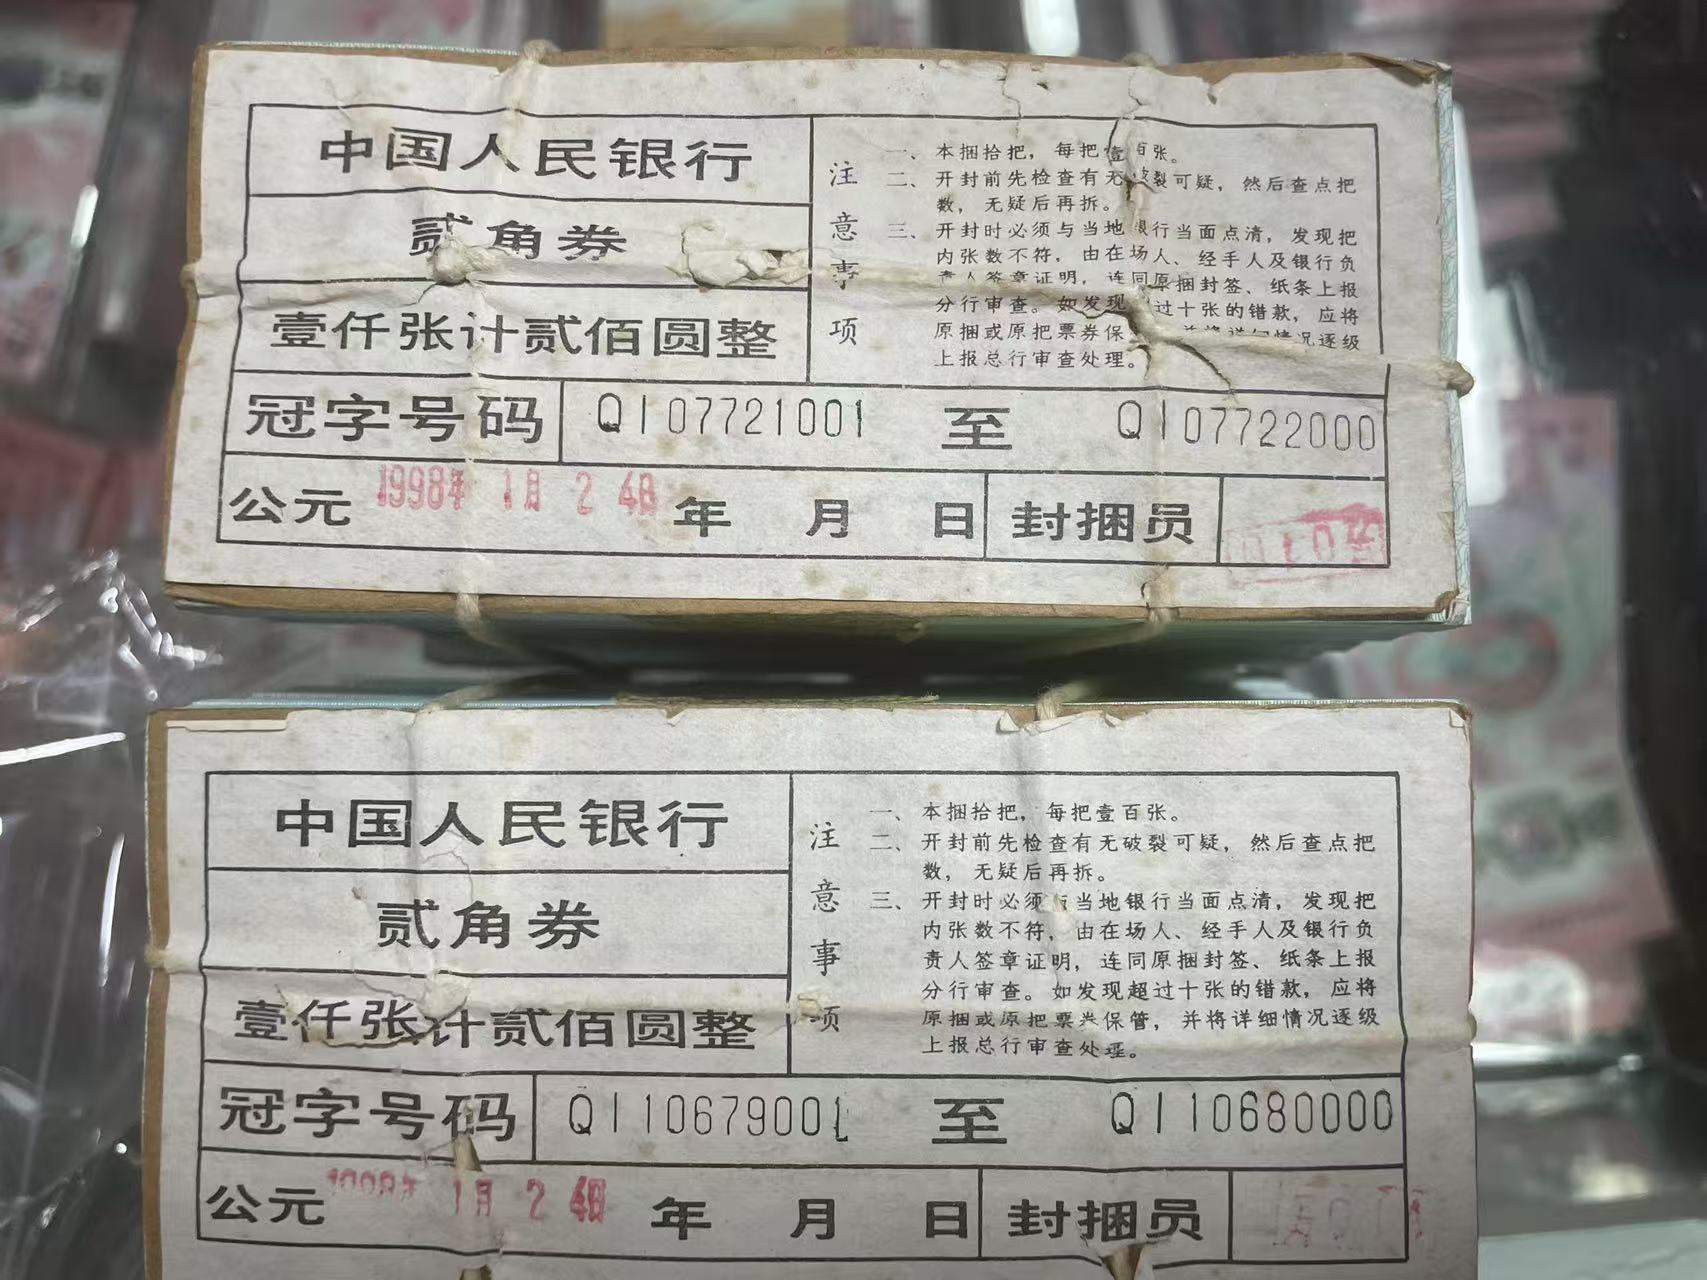 中国人民银行
贰角券
壹仟张计贰佰圆整
注意事项
一、本捆拾把，每把壹百张。
二、开封前先检查有无破裂可疑，然后查点把
数，无疑后再拆。
三、开封时必须与当地银行当面点清，发现把
内张数不符，由在场人、经手人及银行负
责人签章证明，连同原捆封签、纸条上报
分行审查。如发现超过十张的错款，应将
原捆或原把票券保 并将详细情况逐级
上报总行审查处理。
冠字号码 QI07721001 至 QI07722000
公元 1998年 1月 2 4日 年 月 日 封捆员
中国人民银行
贰角券
壹仟张计贰佰圆整
注意事项
一、本捆拾把，每把壹百张。
二、开封前先检查有无破裂可疑，然后查点把
数，无疑后再拆。
三、开封时必须与当地银行当面点清，发现把
内张数不符，由在场人、经手人及银行负
责人签章证明，连同原捆封签、纸条上报
分行审查。如发现超过十张的错款，应将
原捆或原把票券保管，并将详细情况逐级
上报总行审查处理。
冠字号码 QI10679001 至 QI10680000
公元 1998年 1月 2 4日 年 月 日 封捆员